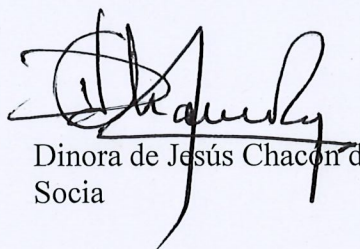 Dinora de Jesús Chacón d
Socia